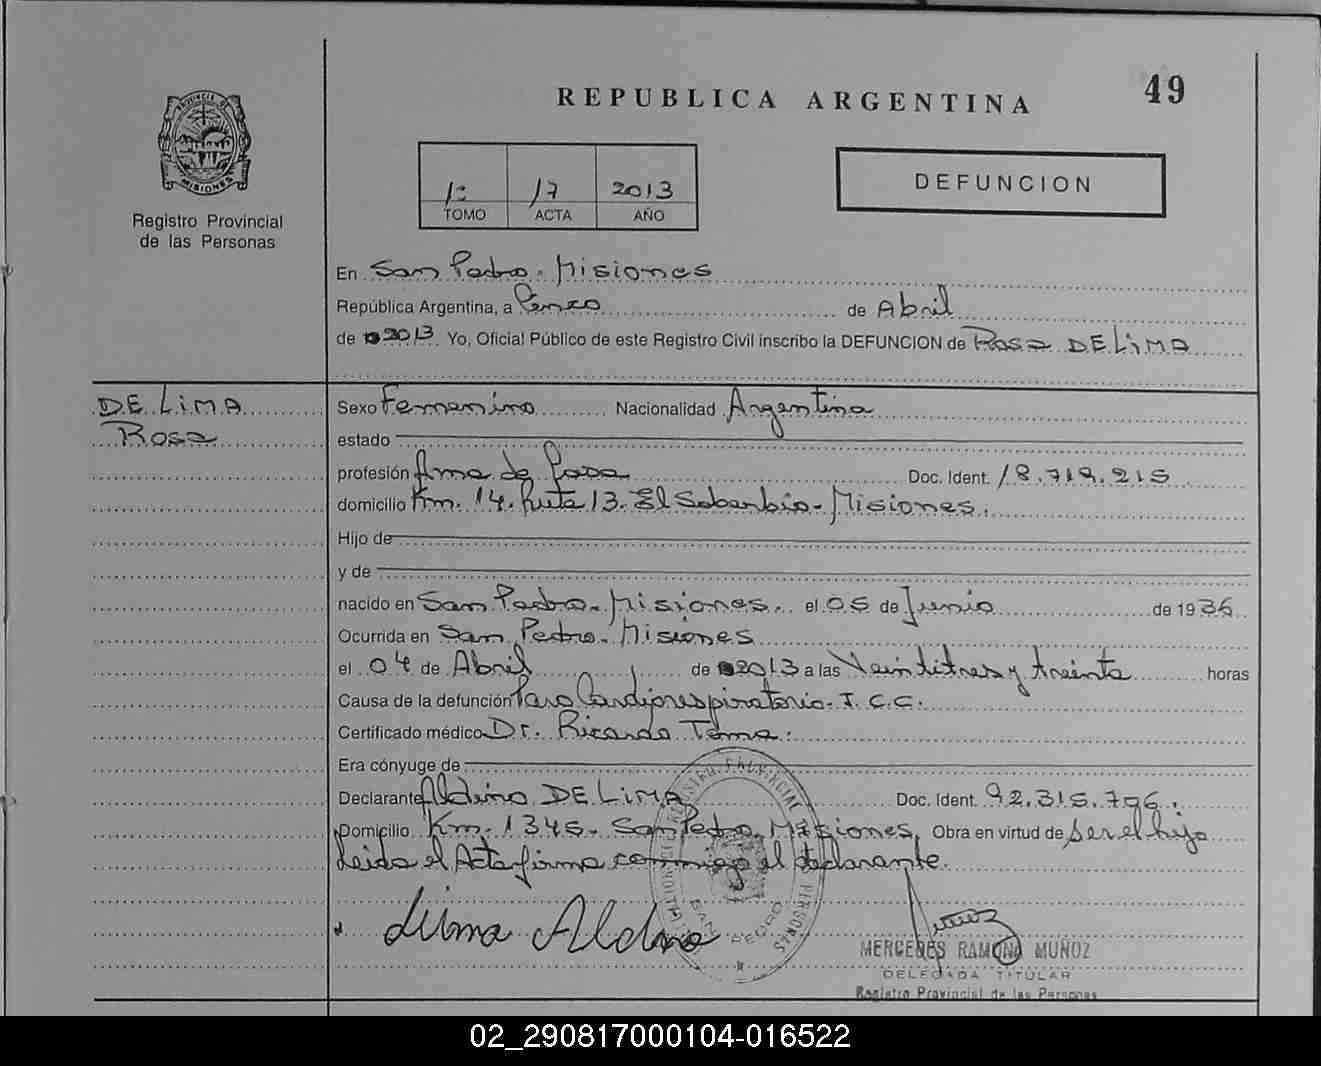 49
REPUBLICA ARGENTINA
PROVINCIA DE
MISIONES
Registro Provincial
de las Personas
17 2013
TOMO ACTA AÑO
DEFUNCION
En San Pedro - Misiones
República Argentina, a de Abril
de 2013 Yo, Oficial Público de este Registro Civil inscribo la DEFUNCION de Rosa DE LiMA
DE LiMA
Rosa
Sexo Femenino Nacionalidad Argentina
estado
profesión Ama de Casa Doc. Ident. 18.719.215
domicilio Km. 14. Ruta 13. El Soberbio - Misiones.
Hijo de
y de
nacido en San Pedro - Misiones. el 05 de Junio de 1936
Ocurrida en San Pedro - Misiones
el 04 de Abril de 2013 a las Veintitres y treinta horas
Causa de la defunción Paro Cardiorespiratorio - I. C. C.
Certificado médico Dr. Ricardo Tema.
Era cónyuge de
Declarante Aldino DE LiMA Doc. Ident. 92.315.796.
Domicilio Km. 1345. San Pedro Misiones. Obra en virtud de ser el hijo
Leida el Acta firma conmigo el declarante.
Lima Aldino
REGISTRO PROVINCIAL
PERSONAS
SAN PEDRO
MERCEDES RAMONA MUÑOZ
DELEGADA TITULAR
Registro Provincial de las Personas
02_290817000104-016522